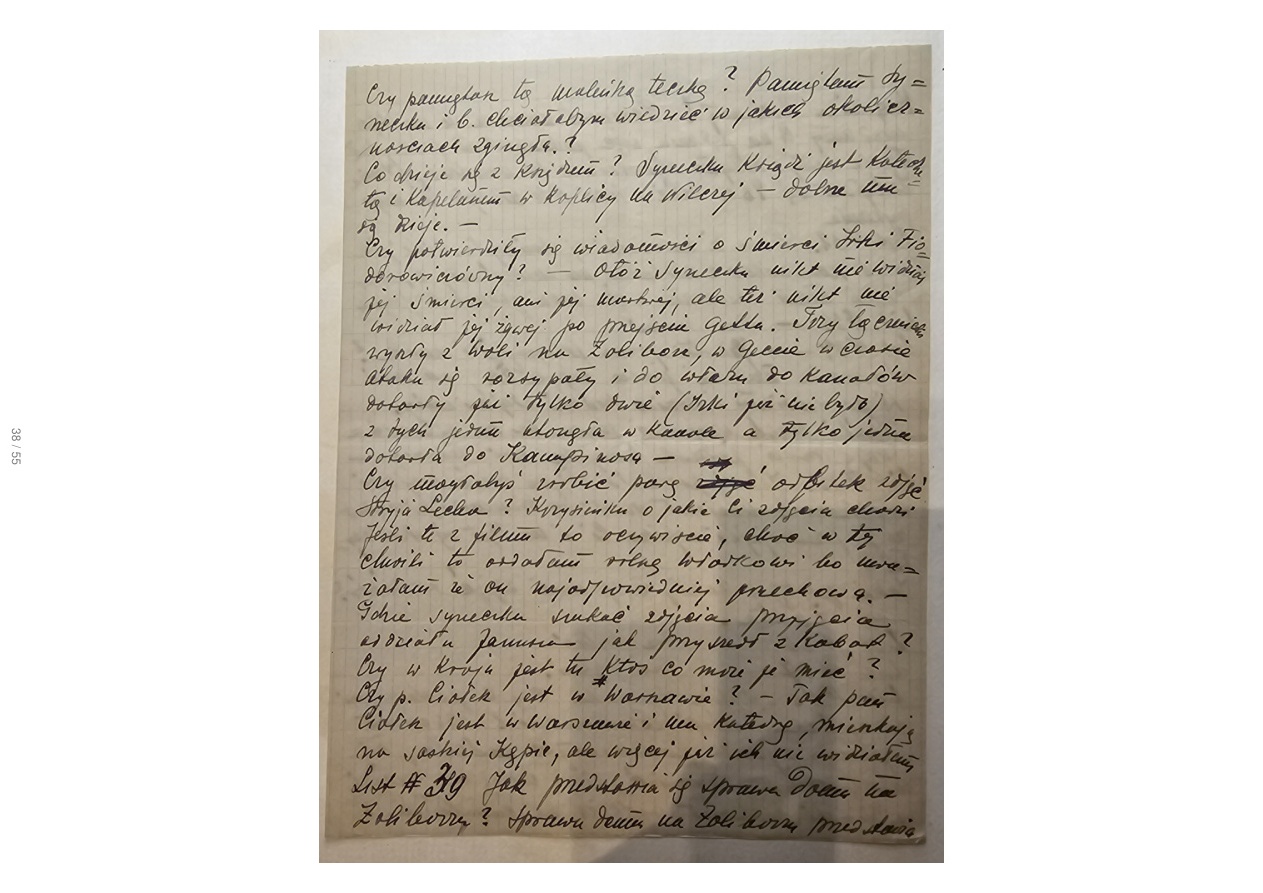 Czy pamiętasz tą maleńką teczkę? Pamiętam Sy=
neczku i b. chciałabym wiedzieć w jakich okolicz=
nościach zginęła.?
Co dzieje się z Księdzem? Syneczku Ksiądz jest Kateche
tą i Kapelanem w Kaplicy na Wilczej — dobrze mu
się dzieje. —
Czy potwierdziły się wiadomości o śmierci Irki Fio=
dorowiczówny? — Otóż Syneczku nikt nie widział
jej śmierci, ani jej martwej, ale też nikt nie
widział jej żywej po przejściu Getta. Trzy łączniczki
wyszły z Woli na Żoliborz, w Geccie w czasie
ataku się rozsypały i do włazu do Kanałów
dotarły już tylko dwie (Irki już nie było)
z tych jedna utonęła w Kanale a tylko jedna
dotarła do Kampinosa —
Czy mogłabyś zrobić parę odbitek zdjęć
Stryja Lecha? Krzysieńku o jakie Ci zdjęcia chodzi
Jeśli te z filmu to oczywiście, choć w tej
chwili to oddałam rolkę Władkowi bo uwa=
żałam że on najodpowiedniej przechowa. —
Gdzie syneczku szukać zdjęcia przyjęcia
oddziału Janusza jak przyszedł z Kabat?
Czy w Kraju jest tu Ktoś co może je mieć?
Czy p. Ciołek jest w Warszawie? — Tak pan
Ciołek jest w Warszawie i ma Katedrę, mieszkają
na saskiej Kępie, ale więcej już ich nie widziałam
List # 39 Jak przedstawia się sprawa Domu na
Żoliborzu? Sprawa domu na Żoliborzu przedstawia
38 / 55